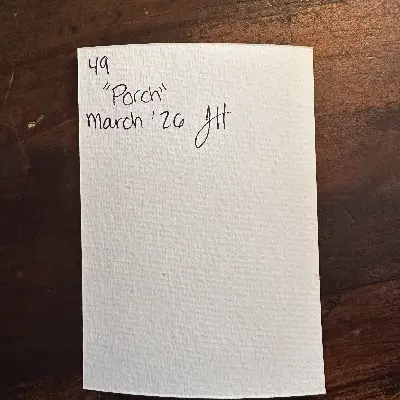 49
"Porch"
March '26 JH